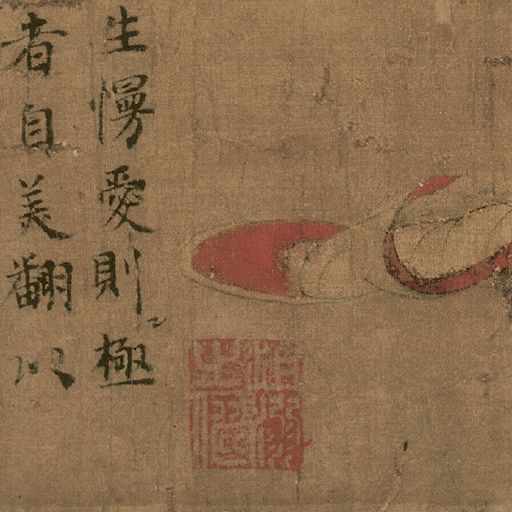 生慢愛則極
者自美翩以